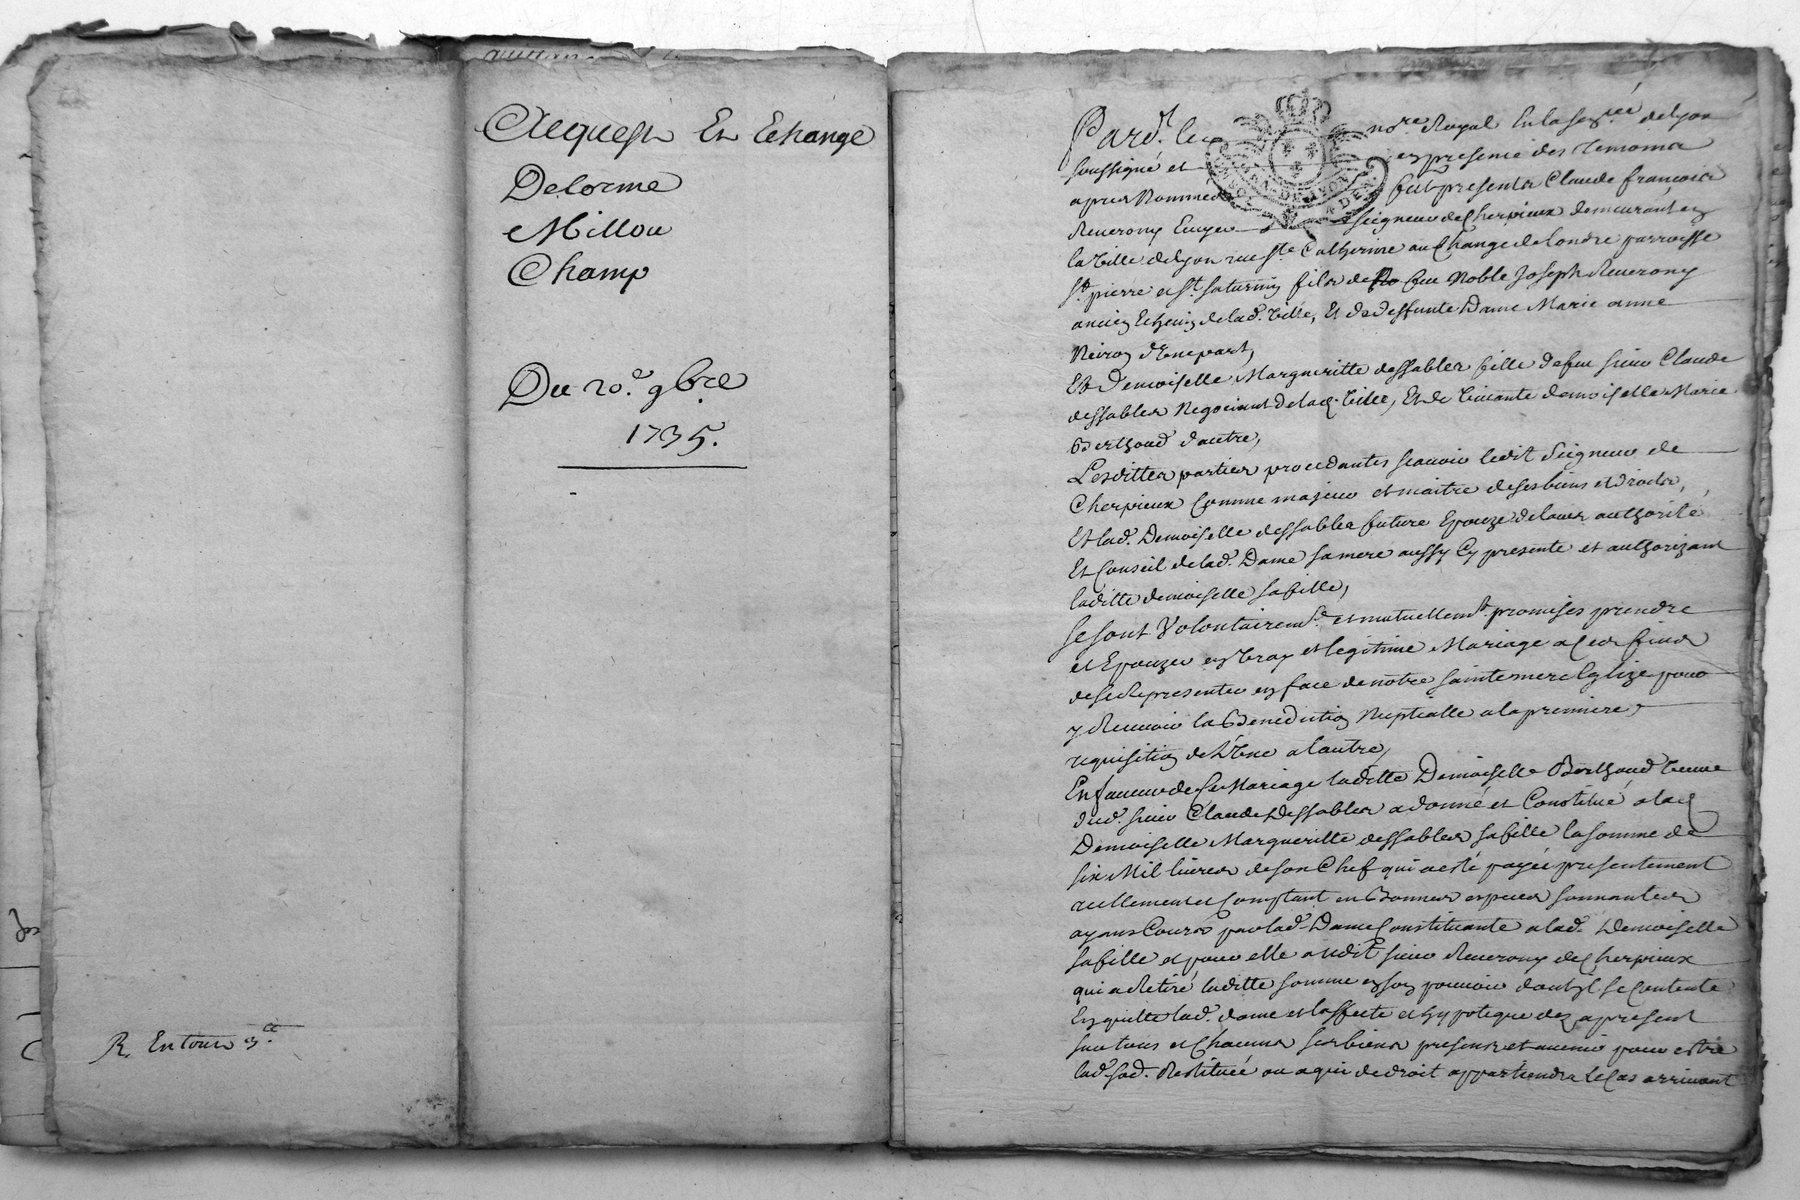 Acquest Et Echange
Delorme
Millou
Champ
Du 20.e 9bre
1735.
R. En tour 3.
Pard.t le no.re Royal En la sen.cée de Lyon
soussigné et en presence des temoins
apres Nommes fut presents Claude francois
Reverony Ecuyer seigneur de Cherpieux demeurant en
la Ville de Lyon rue S.te Catherine au Change de Londre parroisse
S.t pierre et S.t saturnin fils de feu Noble Joseph Reverony
ancien Echevin de lad. Ville, Et de deffunte Dame Marie anne
Neiron d'Une part,
Et Demoiselle Margueritte dessables fille de feu sieur Claude
dessables Negociant de lad. Ville, Et de Vivante demoiselle Marie
Berthoud d'autre,
Lesdittes parties procedantes scavoir ledit Seigneur de
Cherpieux Comme majeur et maitre de ses biens et droits,
Et lad. Demoiselle dessables future Epouze de lavis authorité
Et Conseil de lad. Dame sa mere aussy Cy presente et authorizant
laditte demoiselle sa fille,
se sont Volontairem.t et mutuellem.t promises prendre
et Epouzer en vray et legitime Mariage a Ces fins
de se Representer en face de notre sainte mere Eglize pour
y Recevoir la Benediction Nuptialle a la premiere
requisition de L'Une a l'autre,
En faveur de Ce Mariage laditte Demoiselle Berthoud Veuve
dud. sieur Claude Dessables a donné et Constitué a lad.
Demoiselle Margueritte dessables sa fille la somme de
six Mil livres de son Chef qui a esté payée presentement
reellement et Comptant en Bonnes especes sonnantes
ayans Cours par lad. Dame Constituante a lad. Demoiselle
sa fille et pour elle audit sieur Reverony de Cherpieux
qui a Retiré laditte somme en son pouvoir dont il se Contente
En quitte lad. dame et l'affecte et hypoteque des a present
sur tous et Chacuns ses biens presents et avenir pour estre
lad. sad. Restituée ou a qui de droit appartiendra le Cas arrivant